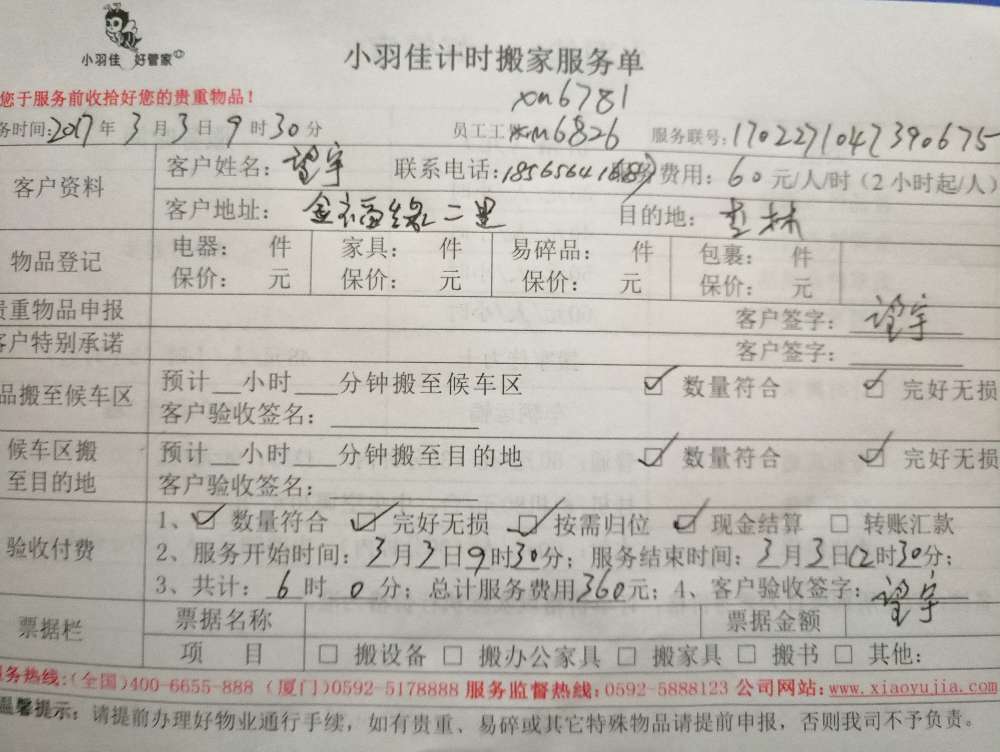 小羽佳 好管家
小羽佳计时搬家服务单
您于服务前收拾好您的贵重物品！
xm6781
务时间:2017年3月3日9时30分 员工工 xm6826 服务联号:1702271047390675
客户资料 客户姓名: 望宇 联系电话: 费用: 60元/人/时(2小时起/人)
客户地址: 金福缘二里 目的地:
物品登记 电器: 件 家具: 件 易碎品: 件 包裹: 件
保价: 元 保价: 元 保价: 元 保价: 元
贵重物品申报 客户签字: 望宇
客户特别承诺 客户签字:
品搬至候车区 预计__小时___分钟搬至候车区 ☑ 数量符合 ☑ 完好无损
客户验收签名:
候车区搬至目的地 预计__小时___分钟搬至目的地 ☑ 数量符合 ☑ 完好无损
客户验收签名:
验收付费 1、☑ 数量符合 ☑ 完好无损 ☑ 按需归位 ☑ 现金结算 □ 转账汇款
2、服务开始时间: 3月3日9时30分; 服务结束时间: 3月3日12时30分;
3、共计: 6时0分; 总计服务费用360元; 4、客户验收签字: 望宇
票据栏 票据名称 票据金额
项 目 □ 搬设备 □ 搬办公家具 □ 搬家具 □ 搬书 □ 其他:
服务热线:(全国)400-6655-888 (厦门)0592-5178888 服务监督热线:0592-5888123 公司网站:www.xiaoyujia.com
温馨提示: 请提前办理好物业通行手续，如有贵重、易碎或其它特殊物品请提前申报，否则我司不予负责。